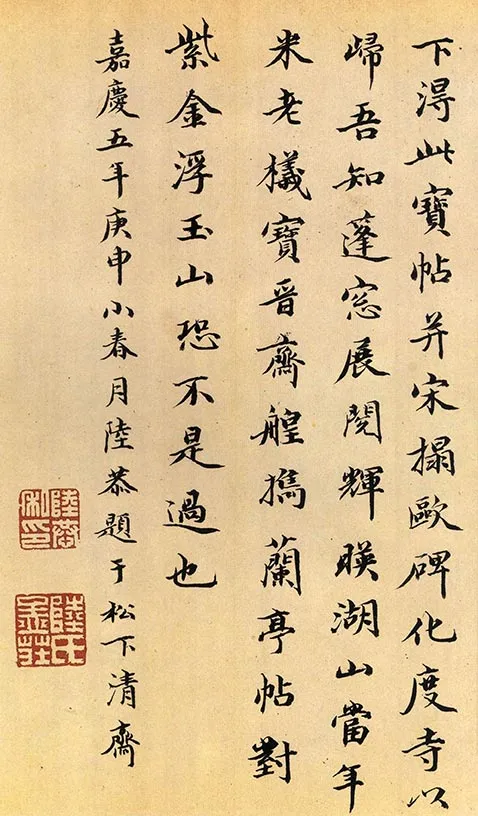 下淂此寶帖并宋搨歐碑化度寺以
歸吾知蓬窓展閱輝暎湖山當年
米老檥寶晋齋艎擕蘭亭帖對
紫金浮玉山恐不是過也
嘉慶五年庚申小春月陸恭題于松下清齋
陸恭私印
陸氏